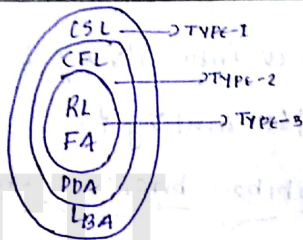 CSL → TYPE-1
CFL
→ TYPE-2
RL → TYPE-3
FA
PDA
LBA